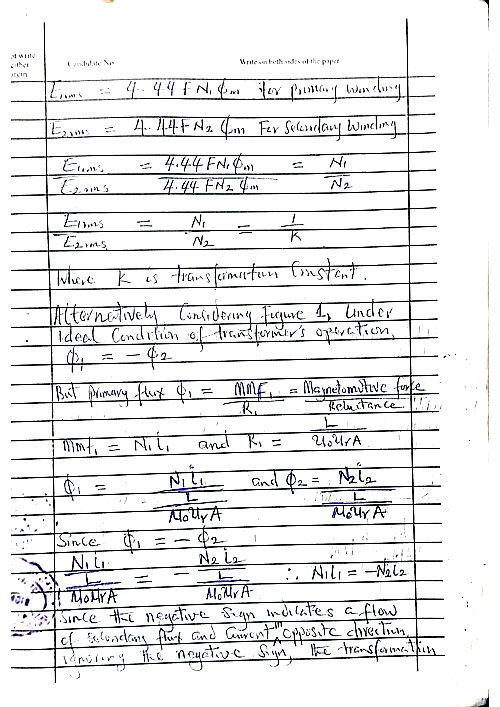 Candidate No
Write on both sides of the paper
E1rms = 4.44 F N1 ϕm for primary winding
E2rms = 4.44 F N2 ϕm For Secondary Winding
E1rms / E2rms = 4.44 F N1 ϕm / 4.44 F N2 ϕm = N1 / N2
E1rms / E2rms = N1 / N2 = 1 / K
Where K is transformation Constant.
Alternatively Considering figure 1, Under
Ideal Condition of transformer's operation,
ϕ1 = - ϕ2
But primary flux ϕ1 = MMF1 / R1 = Magnetomotive force / Reluctance
MMf1 = N1 i1 and R1 = L / U0 Ur A
ϕ1 = N1 i1 / (L / M0 Ur A) and ϕ2 = N2 i2 / (L / M0 Ur A)
Since ϕ1 = - ϕ2
N1 i1 / (L / M0 Mr A) = - N2 i2 / (L / M0 Ur A) ∴ N1 i1 = - N2 i2
Since the negative Sign indicates a flow
of secondary flux and current in opposite direction.
ignoring the negative Sign, the transformation